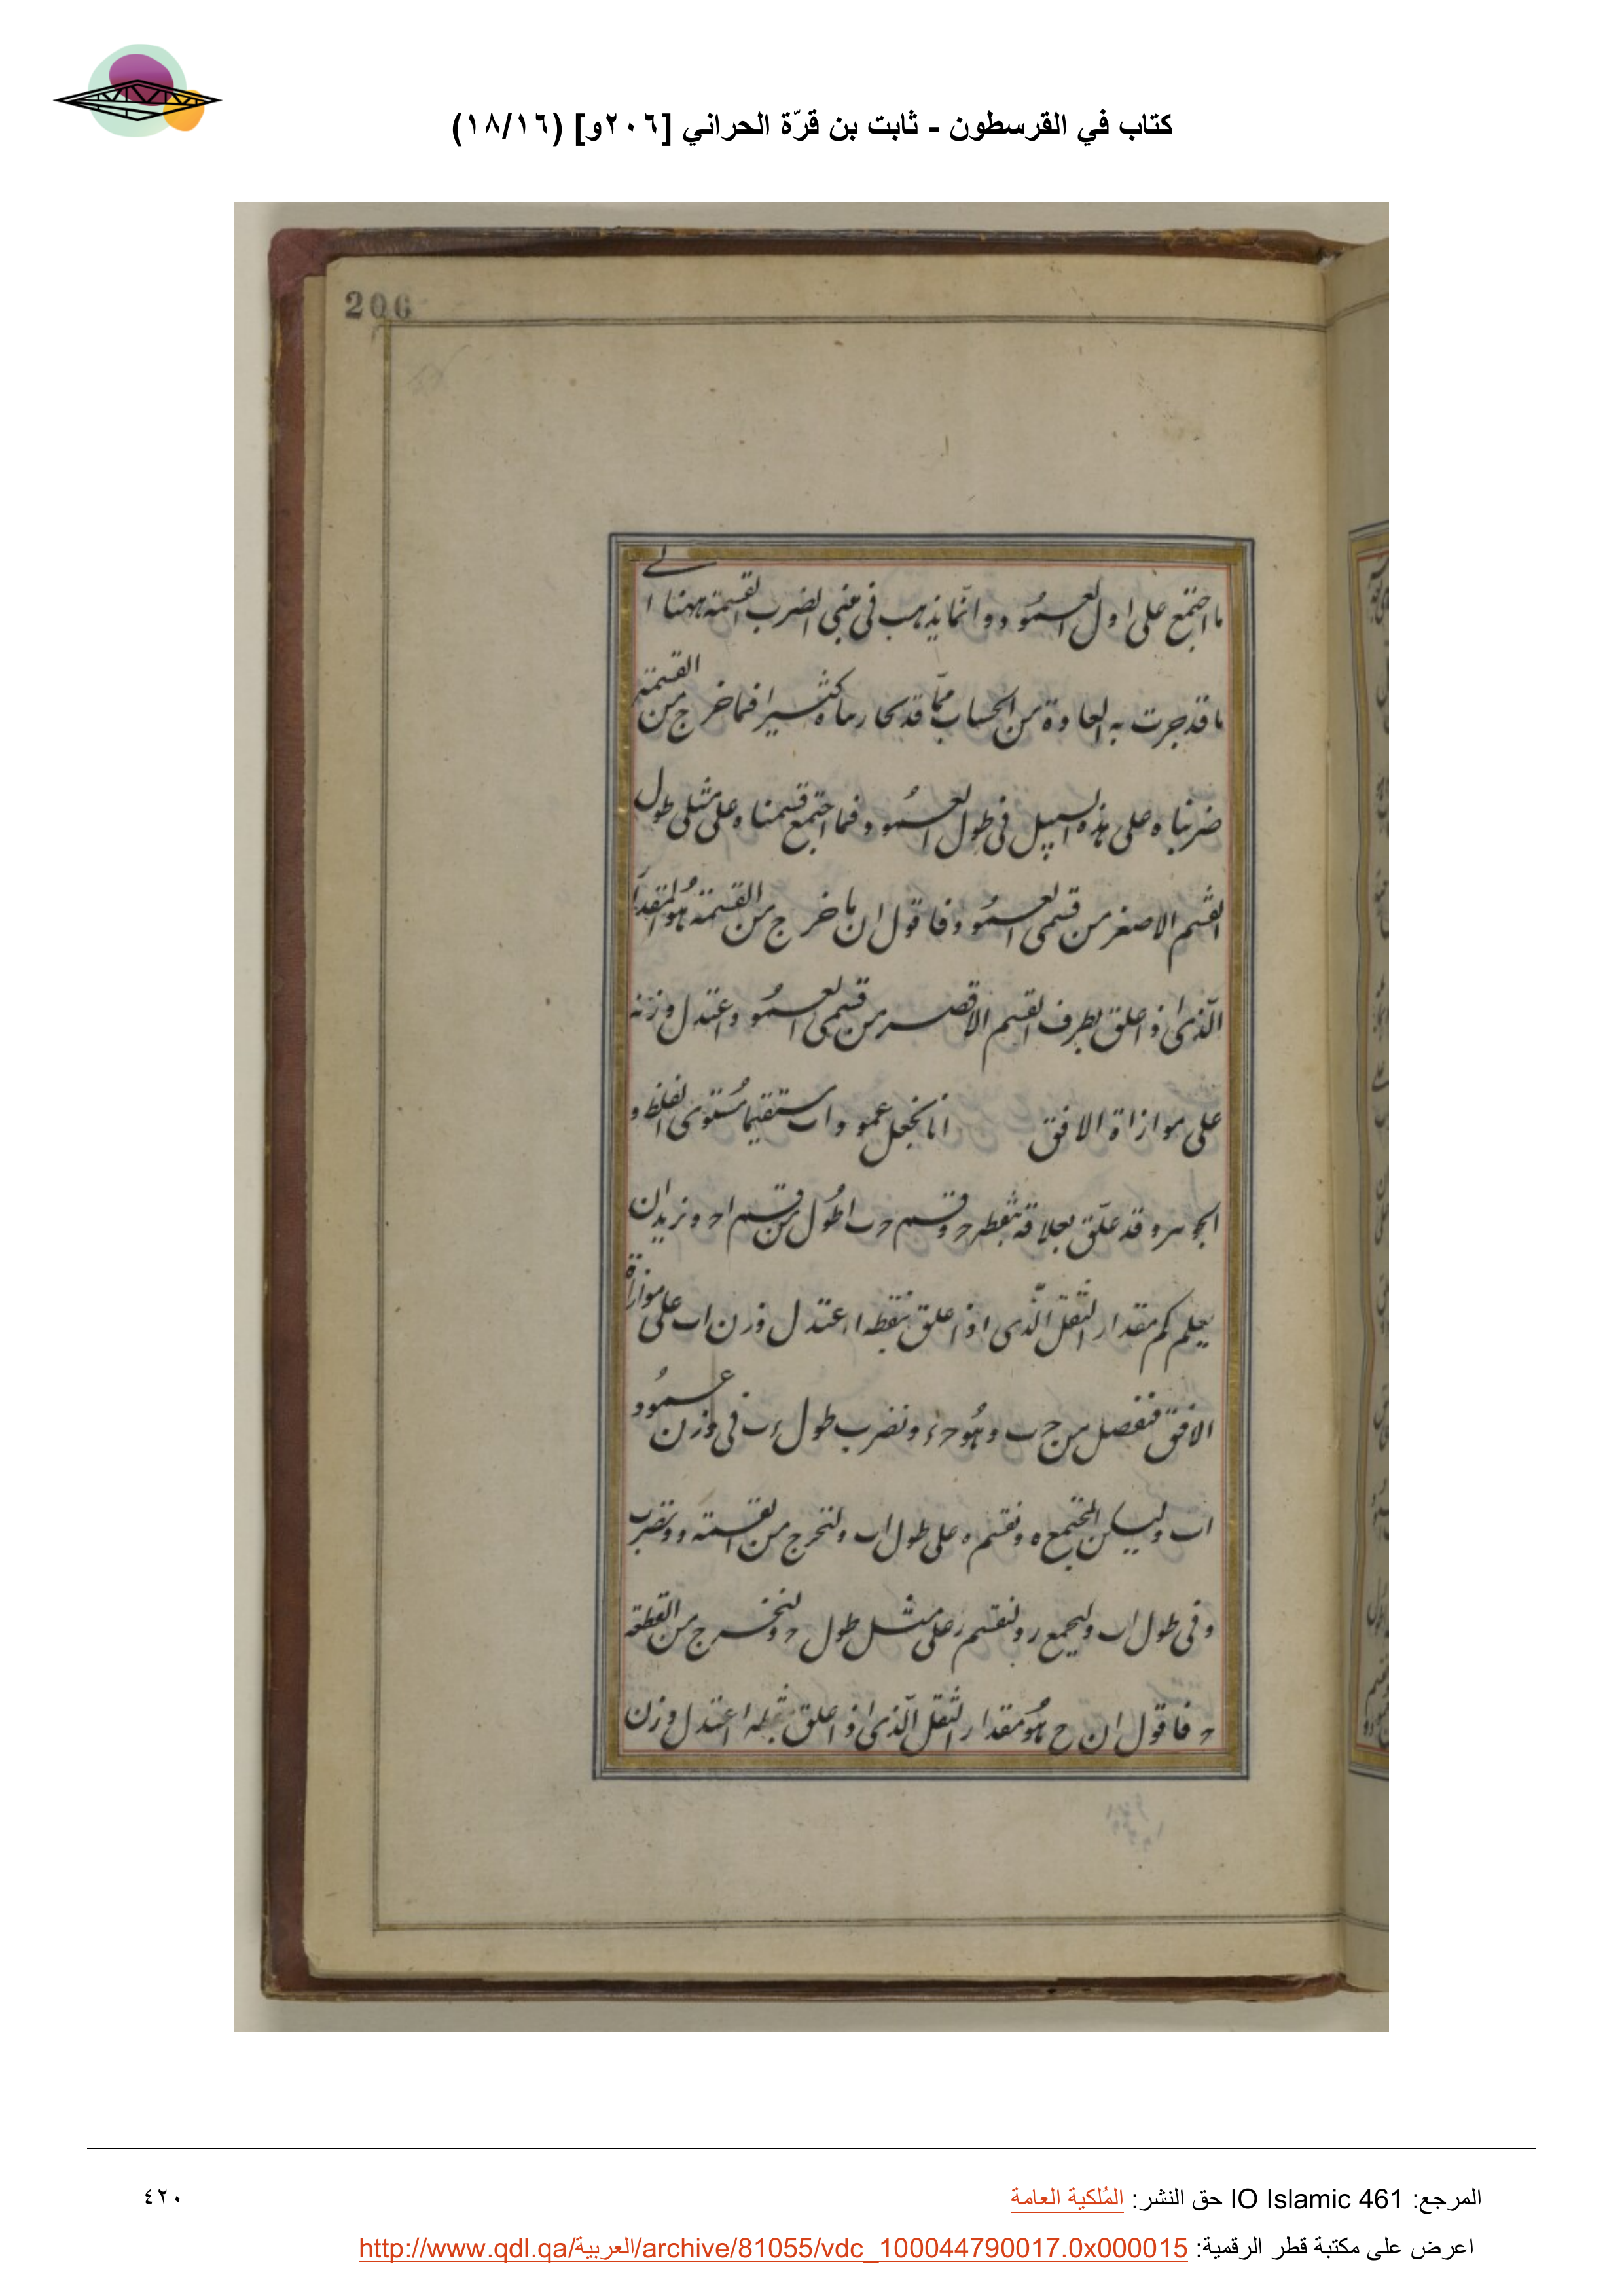 كتاب في القرسطون - ثابت بن قرّة الحراني [٢٠٦و] (١٨/١٦)
206
ما اجتمع على اول العمود وانما يذهب فى هنى الضرب القسمة ههنا الى
ما قد جرت به العادة من الحساب مما قد كثيرا فما خرج من القسمة
ضربناه على هذه السبيل فى طول العمود فما اجتمع قسمناه على مثلى طول
القسم الاصغر من قسمى العمود فاقول ان ما خرج من القسمة هو المقدار
الذى اذ اعلق بطرف القسم الاقصر من قسمى العمود اعتدل وزنه
على موازاة الافق انا نجعل عمود اب مستقيما مستوى الغلظ و
الجوهر وقد علق بعلاقة بنقطه ح وقسم ح ب اطول من قسم اح ونريد ان
يعلم كم مقدار الثقل الذى اذ اعلق بنقطه ا اعتدل وزن اب على موازاة
الافق فنفصل من ج ب وهو ح ء ونضرب طول ء ب فى وزن عمود
اب وليكن المجتمع ه ونقسم ه على طول اب ولتخرج من القسمة و ونضرب
و فى طول اب وليجمع ر ولنقسم ر على مثل طول ح ولنخرج من القطعة
ح فاقول ان ح هو مقدار الثقل الذى اذ اعلق اعتدل وزن
المرجع: IO Islamic 461 حق النشر: المُلكية العامة
٤٢٠
اعرض على مكتبة قطر الرقمية: http://www.qdl.qa/العربية/archive/81055/vdc_100044790017.0x000015